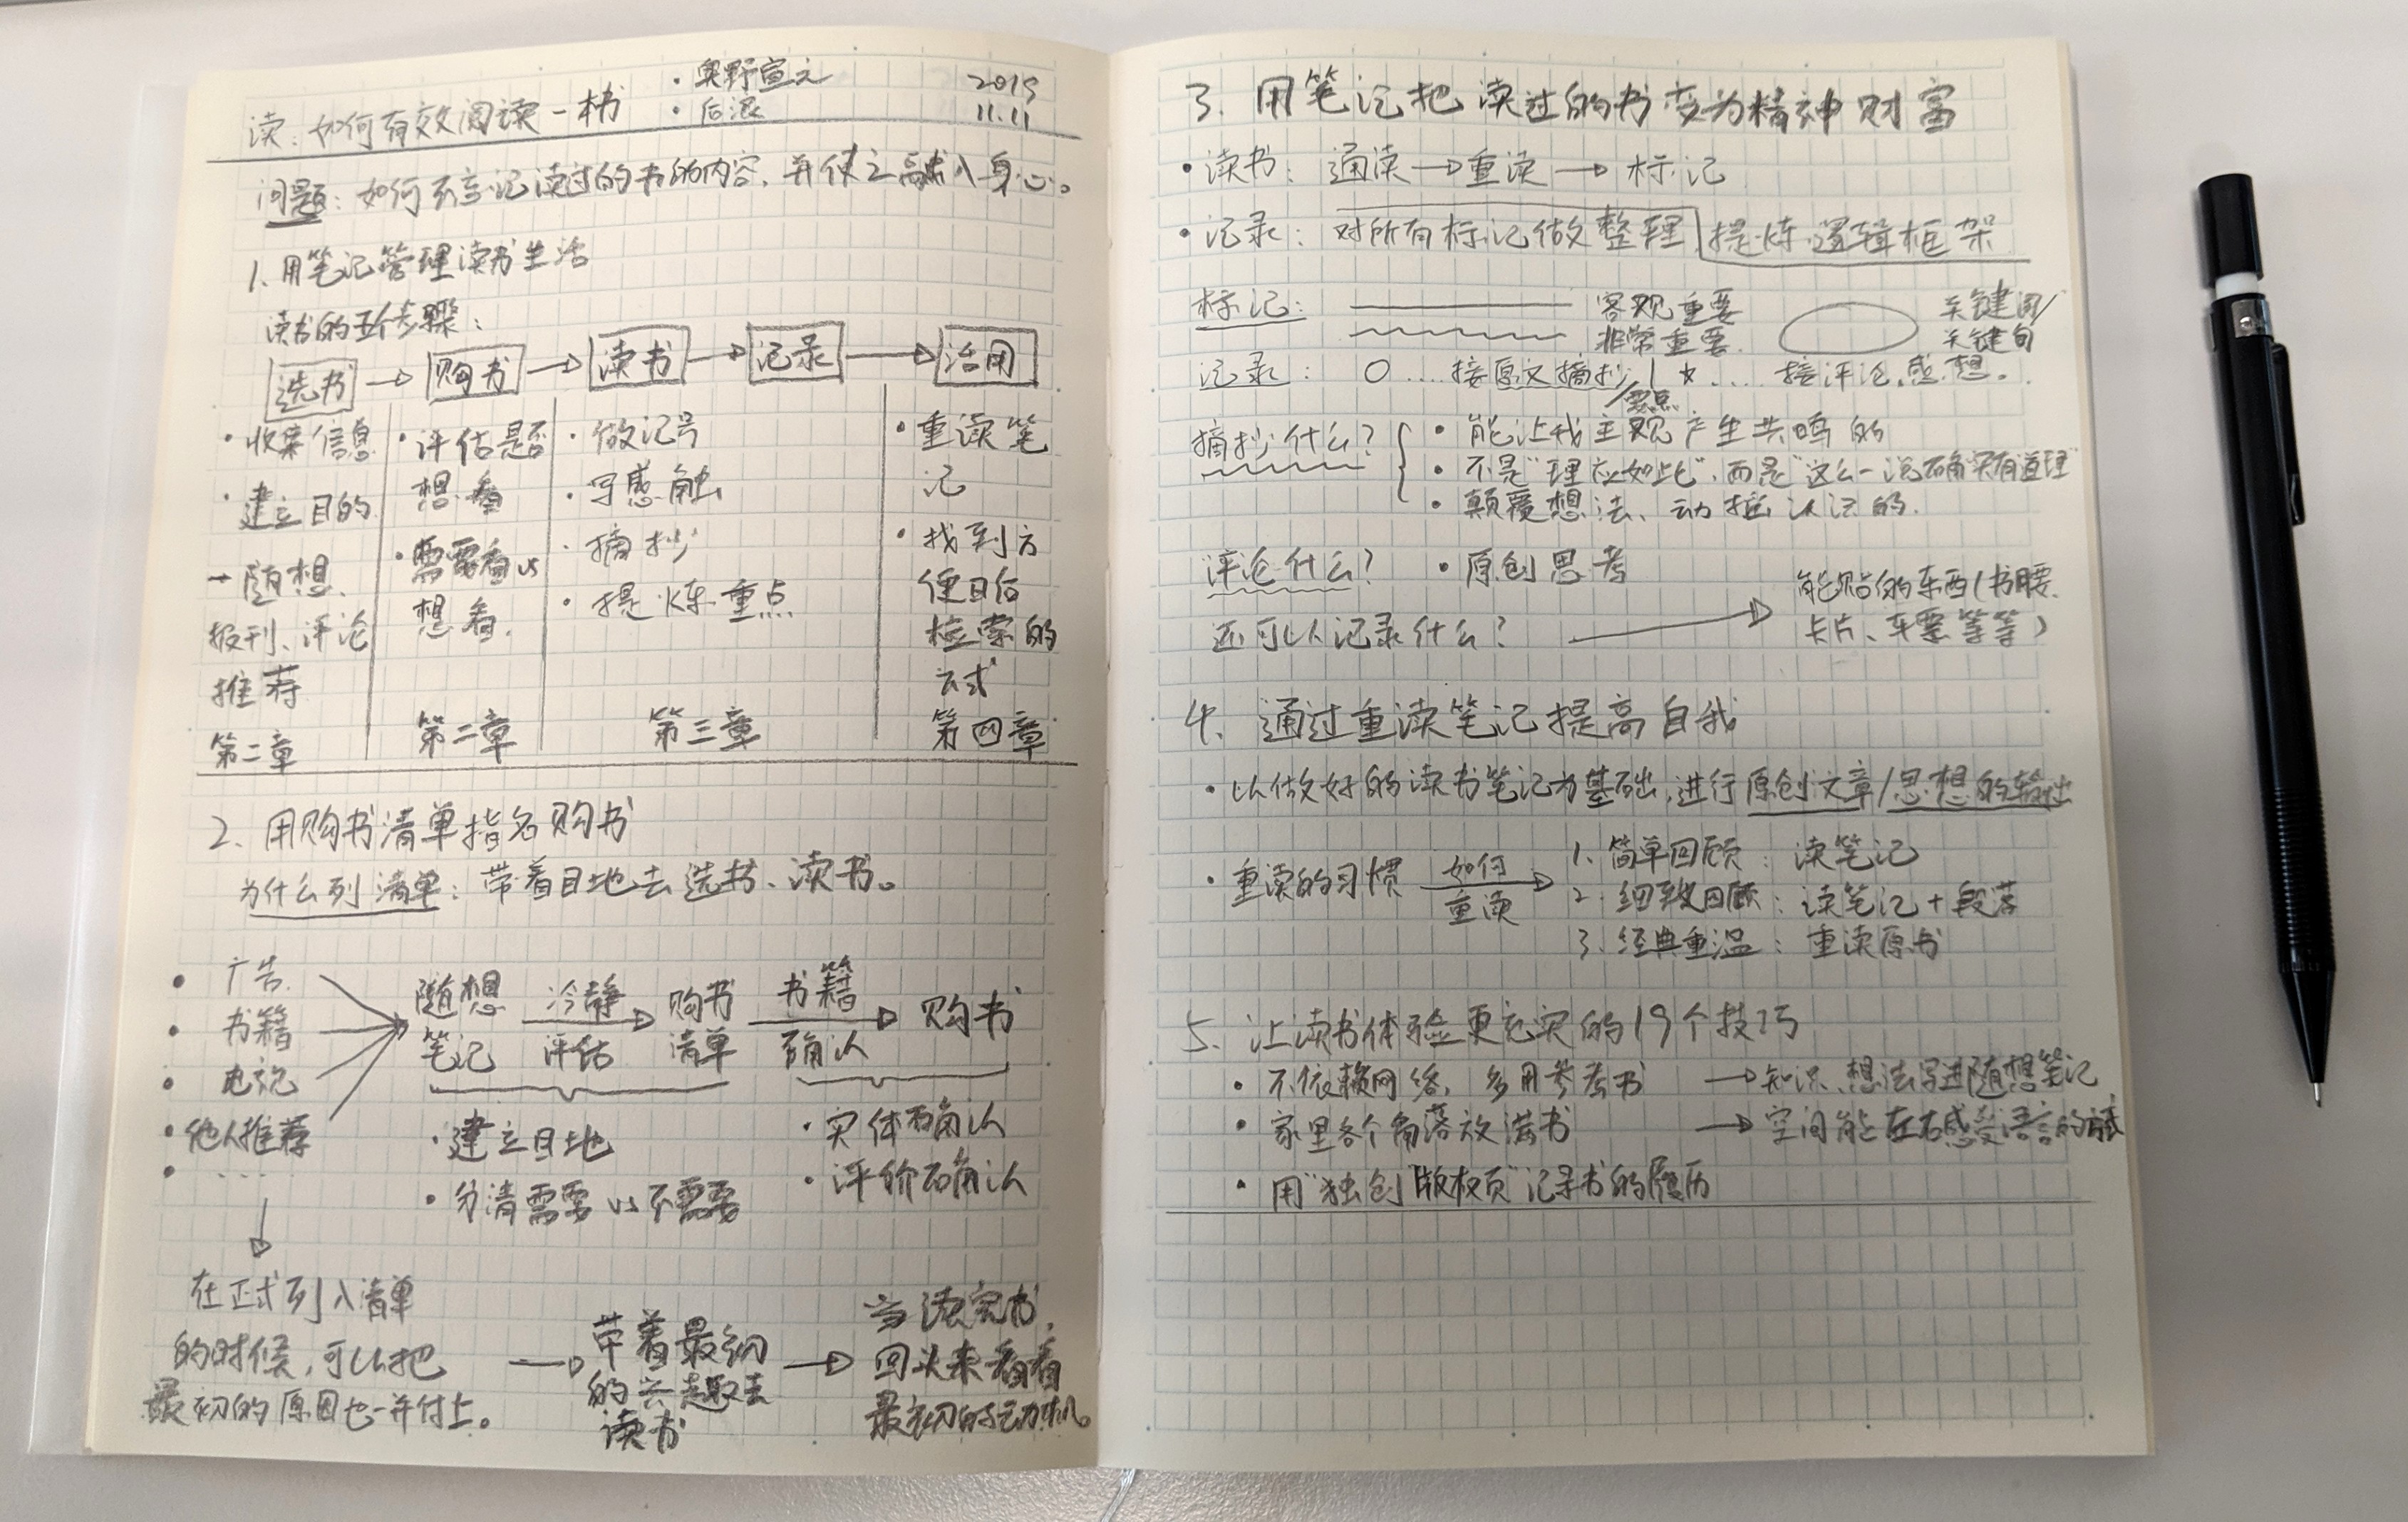 读:如何有效阅读一本书
· 奥野宣之
· 后浪
2019
11.11
问题:如何不忘记读过的书的内容,并使之融入身心。
1. 用笔记管理读书生活
读书的五个步骤:
选书 → 购书 → 读书 → 记录 → 活用
· 收集信息
· 建立目的
→ 随想、
报刊、评论
推荐
第二章
· 评估是否
想看
· 需要看 vs
想看.
第二章
· 做记号
· 写感触
· 摘抄
· 提炼重点
第三章
· 重读笔
记
· 找到方
便日后
检索的
方式
第四章
2. 用购书清单指名购书
为什么列清单:带着目地去选书、读书。
· 广告
· 书籍
· 电视
· 他人推荐
· ....
随想
笔记
冷静
评估
购书
清单
书籍
确认
购书
· 建立目地
· 分清需要 vs 不需要
· 实体确认
· 评价确认
在正式列入清单
的时候,可以把
最初的原因也一并付上。
→ 带着最初
的兴趣去
读书
→ 当读完书,
回头来看看
最初的动机。
3. 用笔记把读过的书变为精神财富
· 读书:通读 → 重读 → 标记
· 记录:对所有标记做整理 提炼逻辑框架
标记: 客观重要
非常重要
关键词/
关键句
记录: ○ .... 接原文摘抄/要点 | ☆ .... 接评论,感想。
摘抄什么?
· 能让我主观产生共鸣的
· 不是“理应如此”,而是“这么一说确实有道理”
· 颠覆想法、动摇认识的.
评论什么? · 原创思考
还可以记录什么? → 能贴的东西(书腰、
卡片、车票等等)
4. 通过重读笔记提高自我
· 以做好的读书笔记为基础,进行原创文章/思想的输出
· 重读的习惯 如何重读 →
1. 简单回顾:读笔记
2. 细致回顾:读笔记+段落
3. 经典重温:重读原书
5. 让读书体验更充实的19个技巧
· 不依赖网络,多用参考书 → 知识、想法写进随想笔记
· 家里各个角落放满书 → 空间能左右感受语言的
· 用“独创”版权页“记录书的履历